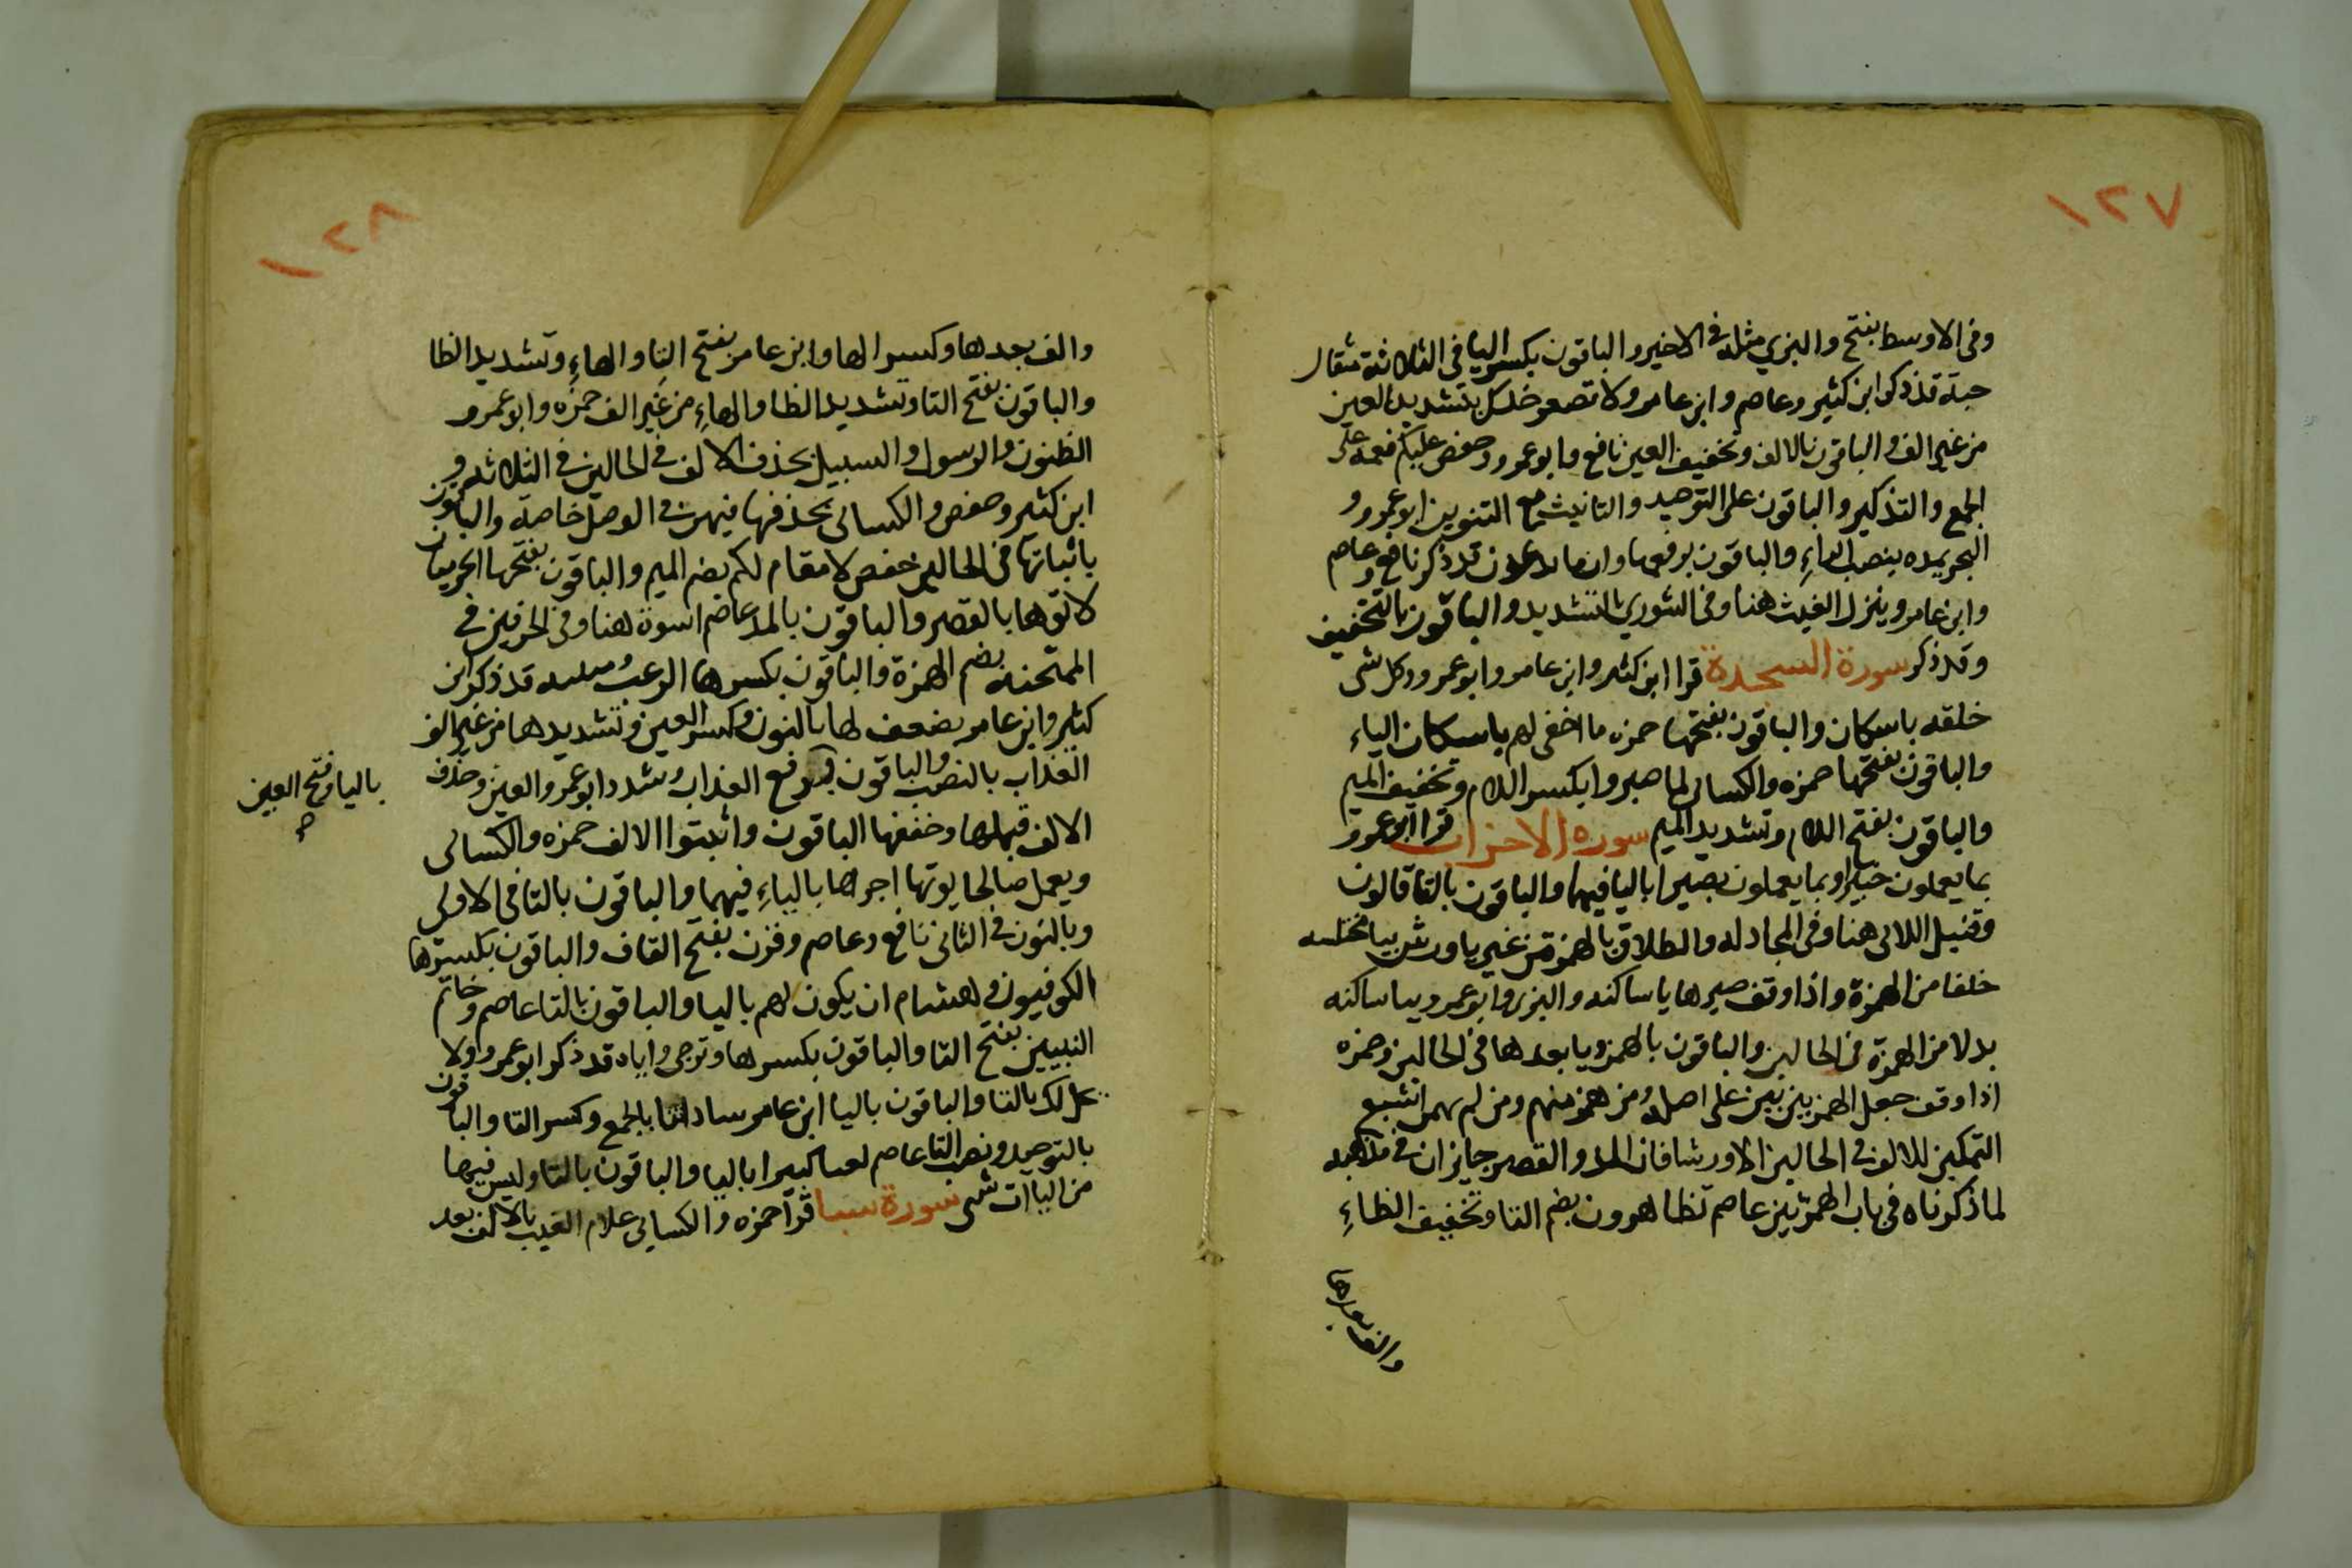 ١٢٧
وفى الاوسط بفتح والبزي مثله فى الاخير والباقون بكسر اليا فى الثلاثة مثقال
حبة قد ذكر ابن كثير وعاصم وابن عامر ولا تصعر خدك بتشديد العين
من غير الف والباقون بالالف وتخفيف العين نافع وابو عمرو وحفص عليكم نعمه على
الجمع والتذكير والباقون على التوحيد والتانيث مع التنوين ابو عمرو و
البحر يمده بنصب الراءِ والباقون برفعها وان ما يدعون قد ذكر نافع وعاصم
وابن عامر وينزل الغيث هنا وفى الشوري بالتشديد والباقون بالتخفيف
وقد ذكر سورة السجدة قرا ابن كثير وابن عامر وابو عمرو وكل شى
خلقه باسكان والباقون بفتحها حمزه ما اخفى لهم باسكان الياء
والباقون بفتحها حمزه والكسائى لما صبروا بكسر اللام وتخفيف الميم
والباقون بفتح اللام وتشديد الميم سوره الاحزاب قرا ابو عمرو
بما يعملون خبيرا وبما يعملون بصيرا باليا فيهما والباقون بالتا قالون
وقنبل اللائى هنا وفى المجادله والطلاق بالهمزة من غير يا ورش بيا مختلسه
خلفا من الهمزة واذا وقف صيرها يا ساكنه والبزى وابو عمرو بيا ساكنه
بدلا من الهمزة فى الحالين والباقون بالهمز ويا بعدها فى الحالين وحمزه
اذا وقف جعل الهمز بين بين على اصله ومن همز منهم ومن لم يهمز اشبع
التمكين للالف فى الحالين الا ورشا فان المد والقصر جايزان فى مذهبه
لما ذكرناه فى باب الهمزتين عاصم تظاهرون بضم التا وتخفيف الظاءِ
والف بعدها
١٢٨
والف بعدها وكسر الها وابن عامر بفتح التا والهاءِ وتشديد الظا
والباقون بفتح التا وتشديد الظا والهاءِ من غير الف حمزه وابو عمرو
الظنون والرسول والسبيل بحذف الالف فى الحالين فى الثلاثه و
ابن كثير وحفص والكسائى بحذفها فيهن فى الوصل خاصه والباقون
باثباتها فى الحالين حفص لا مقام لكم بضم الميم والباقون بفتحها الحرميان
لاتوها بالقصر والباقون بالمد عاصم اسوة هنا وفى الحرفين فى
الممتحنه بضم الهمزة والباقون بكسرها الرعب ومبينه قد ذكر ابن
كثير وابن عامر يضعف لها بالنون وكسر العين وتشديدها من غير الف
العذاب بالنصب والباقون برفع العذاب وشدد ابو عمرو العين وحذف
باليا وفتح العين
صح
الالف قبلها وخففها الباقون واثبتوا الالف حمزه والكسائى
ويعمل صالحا يوتها اجرها بالياءِ فيهما والباقون بالتا فى الاولى
وبالنون فى الثانى نافع وعاصم وقرن بفتح القاف والباقون بكسرها
الكوفيون وهشام ان يكون لهم باليا والباقون بالتا عاصم وخاتم
النبيين بفتح التا والباقون بكسرها وترجى واياه قد ذكر ابو عمرو ولا
تحل لك بالتا والباقون باليا ابن عامر ساداتنا بالجمع وكسر التا والباقون
بالتوحيد ونصب التا عاصم لعنا كبيرا بالبا والباقون بالثا وليس فيها
من الياات شى سورة سبا قرا حمزه والكسائى علام الغيب بالالف بعد